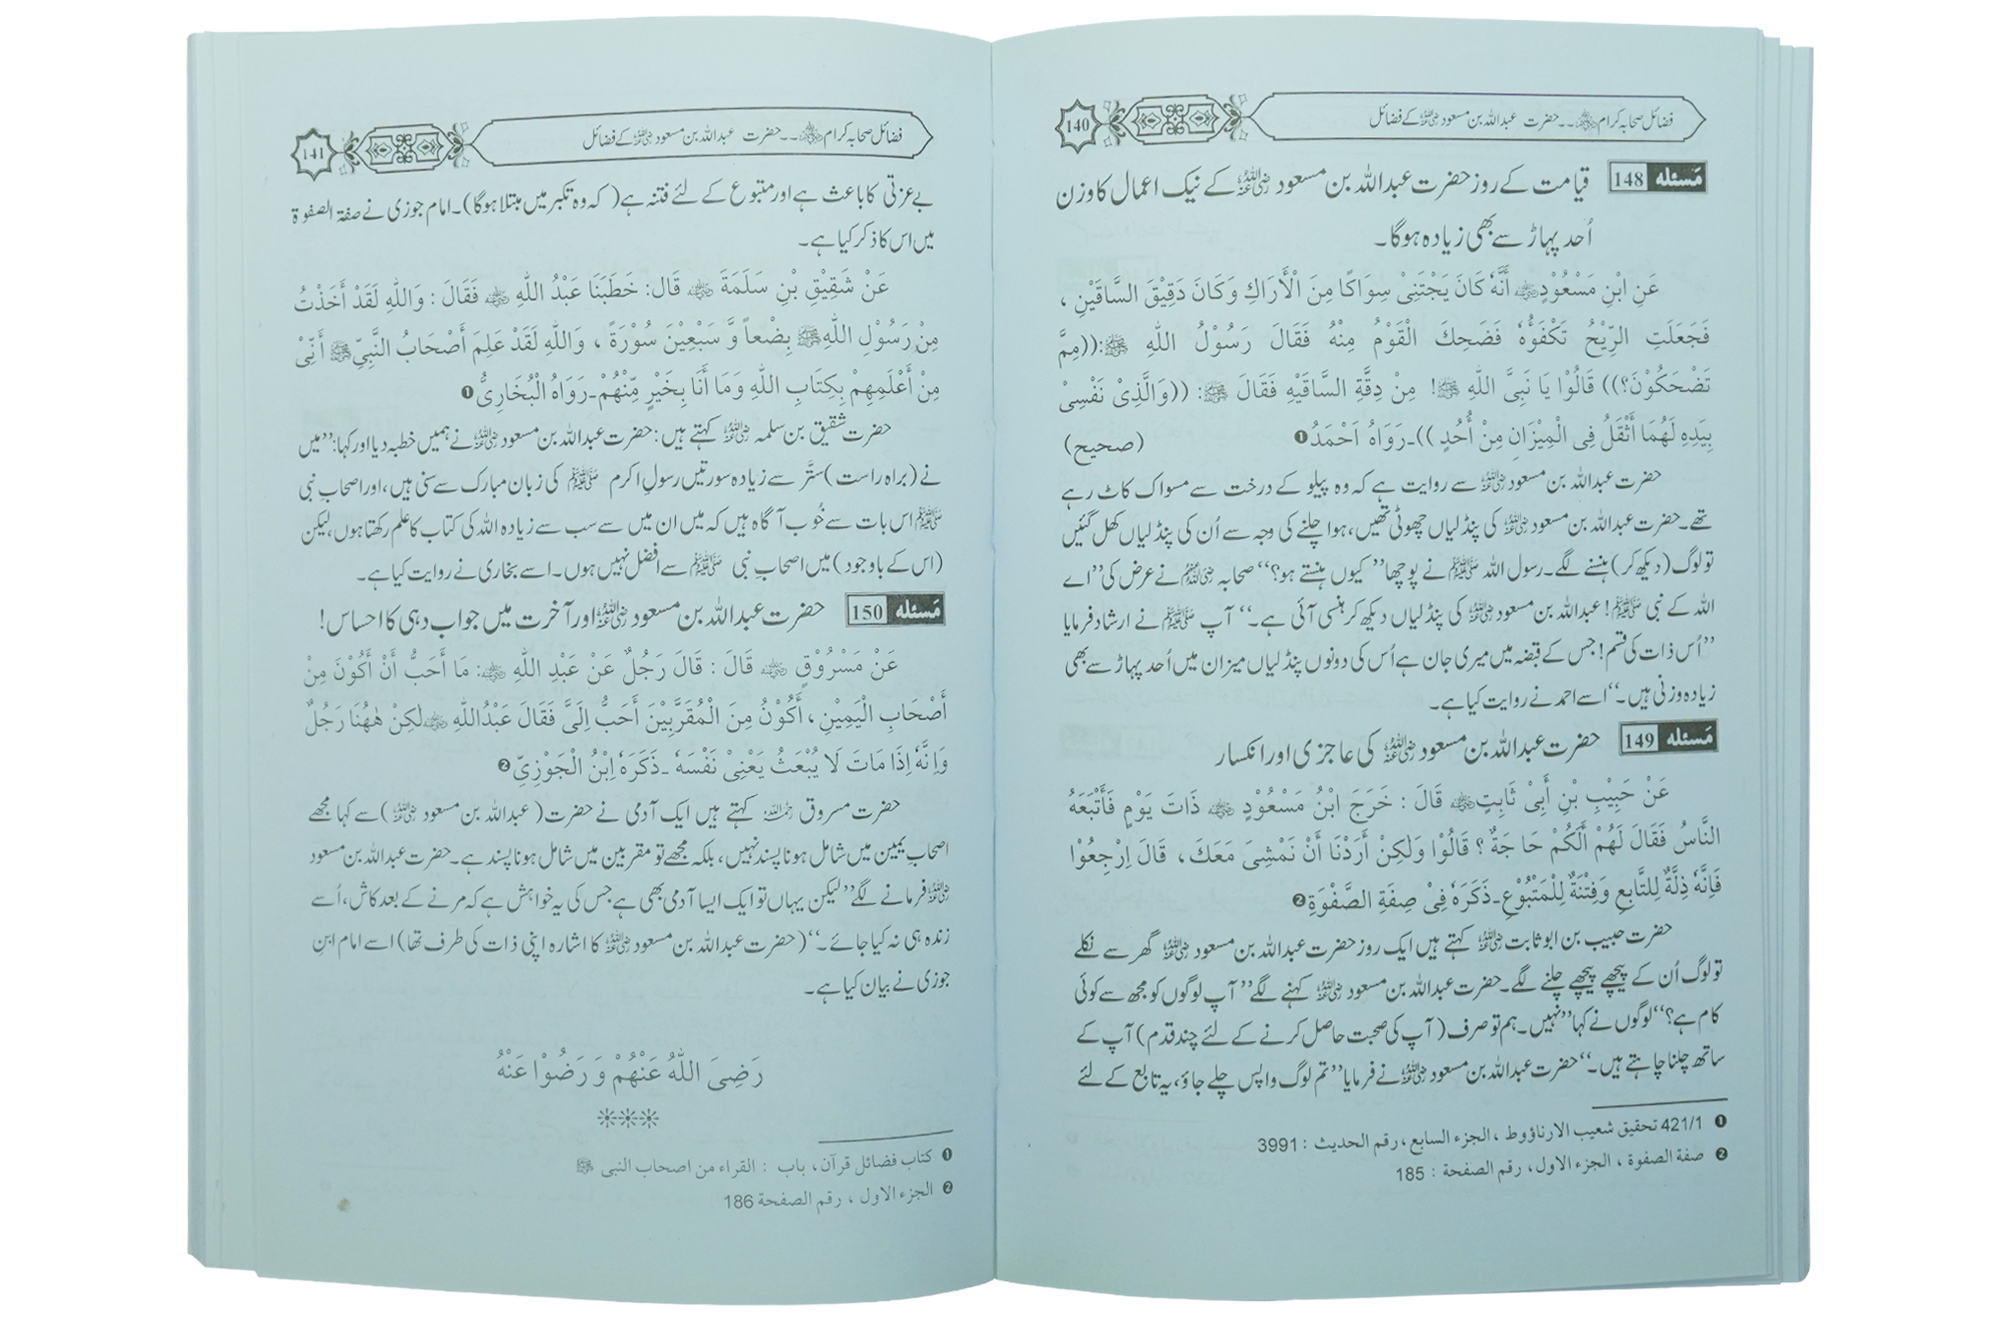 فضائل صحابہ کرام ﷢۔۔حضرت عبداللہ بن مسعود ﷜ کے فضائل
140
مَسئله 148 قیامت کے روز حضرت عبداللہ بن مسعود ﷜ کے نیک اعمال کا وزن
اُحد پہاڑ سے بھی زیادہ ہوگا۔
عَنِ ابْنِ مَسْعُوْدٍ ﷜ أَنَّهٗ كَانَ يَجْتَنِىْ سِوَاكًا مِنَ الْأَرَاكِ وَكَانَ دَقِيْقَ السَّاقَيْنِ ،
فَجَعَلَتِ الرِّيْحُ تَكْفَؤُهٗ فَضَحِكَ الْقَوْمُ مِنْهُ فَقَالَ رَسُوْلُ اللهِ ﷺ:((مِمَّ
تَضْحَكُوْنَ؟)) قَالُوْا يَا نَبِىَّ اللهِ ﷺ! مِنْ دِقَّةِ السَّاقَيْهِ فَقَالَ ﷺ: ((وَالَّذِىْ نَفْسِىْ
بِيَدِهِ لَهُمَا أَثْقَلُ فِى الْمِيْزَانِ مِنْ أُحُدٍ ))۔رَوَاهُ اَحْمَدُ❶ (صحیح)
حضرت عبداللہ بن مسعود ﷜ سے روایت ہے کہ وہ پیلو کے درخت سے مسواک کاٹ رہے
تھے۔حضرت عبداللہ بن مسعود ﷜ کی پنڈلیاں چھوٹی تھیں،ہوا چلنے کی وجہ سے اُن کی پنڈلیاں کھل گئیں
تو لوگ (دیکھ کر) ہنسنے لگے۔رسول اللہ ﷺ نے پوچھا’’ کیوں ہنستے ہو؟‘‘ صحابہ ﷢ نے عرض کی’’ اے
اللہ کے نبی ﷺ! عبداللہ بن مسعود ﷜ کی پنڈلیاں دیکھ کر ہنسی آئی ہے۔‘‘ آپ ﷺ نے ارشاد فرمایا
’’اُس ذات کی قسم! جس کے قبضہ میں میری جان ہے اُس کی دونوں پنڈلیاں میزان میں اُحد پہاڑ سے بھی
زیادہ وزنی ہیں۔‘‘اسے احمد نے روایت کیا ہے۔
مَسئله 149 حضرت عبداللہ بن مسعود ﷜ کی عاجزی اور انکسار
عَنْ حَبِيْبِ بْنِ أَبِىْ ثَابِتٍ ﷜ قَالَ : خَرَجَ ابْنُ مَسْعُوْدٍ ﷜ ذَاتَ يَوْمٍ فَأَتْبَعَهُ
النَّاسُ فَقَالَ لَهُمْ أَلَكُمْ حَاجَةٌ ؟ قَالُوْا وَلٰكِنْ أَرَدْنَا أَنْ نَمْشِىَ مَعَكَ ، قَالَ اِرْجِعُوْا
فَاِنَّهٗ ذِلَّةٌ لِلتَّابِعِ وَفِتْنَةٌ لِلْمَتْبُوْعِ۔ذَكَرَهٗ فِىْ صِفَةِ الصَّفْوَةِ❷
حضرت حبیب بن ابو ثابت ﷜ کہتے ہیں ایک روز حضرت عبداللہ بن مسعود ﷜ گھر سے نکلے
تو لوگ اُن کے پیچھے پیچھے چلنے لگے۔حضرت عبداللہ بن مسعود ﷜ کہنے لگے’’ آپ لوگوں کو مجھ سے کوئی
کام ہے؟‘‘لوگوں نے کہا’’نہیں۔ہم تو صرف (آپ کی صحبت حاصل کرنے کے لئے چند قدم) آپ کے
ساتھ چلنا چاہتے ہیں۔‘‘حضرت عبداللہ بن مسعود ﷜ نے فرمایا’’تم لوگ واپس چلے جاؤ،یہ تابع کے لئے
❶ 421/1 تحقیق شعیب الارناؤوط ، الجزء السابع، رقم الحدیث : 3991
❷ صفة الصفوة ، الجزء الاول، رقم الصفحة : 185
فضائل صحابہ کرام ﷢۔۔حضرت عبداللہ بن مسعود ﷜ کے فضائل
141
بے عزتی کا باعث ہے اور متبوع کے لئے فتنہ ہے( کہ وہ تکبر میں مبتلا ہوگا)۔امام جوزی نے صفة الصفوة
میں اس کا ذکر کیا ہے۔
عَنْ شَقِيْقِ بْنِ سَلَمَةَ ﷜ قَالَ: خَطَبَنَا عَبْدُ اللهِ ﷜ فَقَالَ : وَاللهِ لَقَدْ أَخَذْتُ
مِنْ رَسُوْلِ اللهِ ﷺ بِضْعاً وَّ سَبْعِيْنَ سُوْرَةً ، وَاللهِ لَقَدْ عَلِمَ أَصْحَابُ النَّبِىِّ ﷺ أَنِّىْ
مِنْ أَعْلَمِهِمْ بِكِتَابِ اللهِ وَمَا أَنَا بِخَيْرٍ مِّنْهُمْ۔رَوَاهُ الْبُخَارِىُّ❶
حضرت شقیق بن سلمہ ﷜ کہتے ہیں:حضرت عبداللہ بن مسعود ﷜ نے ہمیں خطبہ دیا اور کہا:’’میں
نے (براہ راست) ستّر سے زیادہ سورتیں رسولِ اکرم ﷺ کی زبان مبارک سے سنی ہیں،اور اصحابِ نبی
ﷺ اس بات سے خُوب آگاہ ہیں کہ میں ان میں سے سب سے زیادہ اللہ کی کتاب کا علم رکھتا ہوں،لیکن
(اس کے باوجود) میں اصحابِ نبی ﷺ سے افضل نہیں ہوں۔اسے بخاری نے روایت کیا ہے۔
مَسئله 150 حضرت عبداللہ بن مسعود ﷜ اور آخرت میں جواب دہی کا احساس!
عَنْ مَسْرُوْقٍ ﷫ قَالَ : قَالَ رَجُلٌ عَنْ عَبْدِ اللهِ ﷜: مَا أَحَبُّ أَنْ أَكُوْنَ مِنْ
أَصْحَابِ الْيَمِيْنِ ، أَكُوْنُ مِنَ الْمُقَرَّبِيْنَ أَحَبُّ اِلَىَّ فَقَالَ عَبْدُاللهِ ﷜ لٰكِنْ هٰهُنَا رَجُلٌ
وَاِنَّهٗ اِذَا مَاتَ لَا يُبْعَثُ يَعْنِىْ نَفْسَهٗ ۔ذَكَرَهٗ اِبْنُ الْجَوْزِىِّ❷
حضرت مسروق ﷫ کہتے ہیں ایک آدمی نے حضرت( عبداللہ بن مسعود ﷜)سے کہا مجھے
اصحابِ یمین میں شامل ہونا پسند نہیں، بلکہ مجھے تو مقربین میں شامل ہونا پسند ہے۔حضرت عبداللہ بن مسعود
﷜ فرمانے لگے’’لیکن یہاں تو ایک ایسا آدمی بھی ہے جس کی یہ خواہش ہے کہ مرنے کے بعد کاش،اُسے
زندہ ہی نہ کیا جائے۔‘‘(حضرت عبداللہ بن مسعود ﷜ کا اشارہ اپنی ذات کی طرف تھا) اسے امام ابنِ
جوزی نے بیان کیا ہے۔
رَضِىَ اللّٰهُ عَنْهُمْ وَ رَضُوْا عَنْهُ
❶ کتاب فضائل قرآن، باب : القراء من اصحاب النبی ﷺ
❷ الجزء الاول ، رقم الصفحة 186